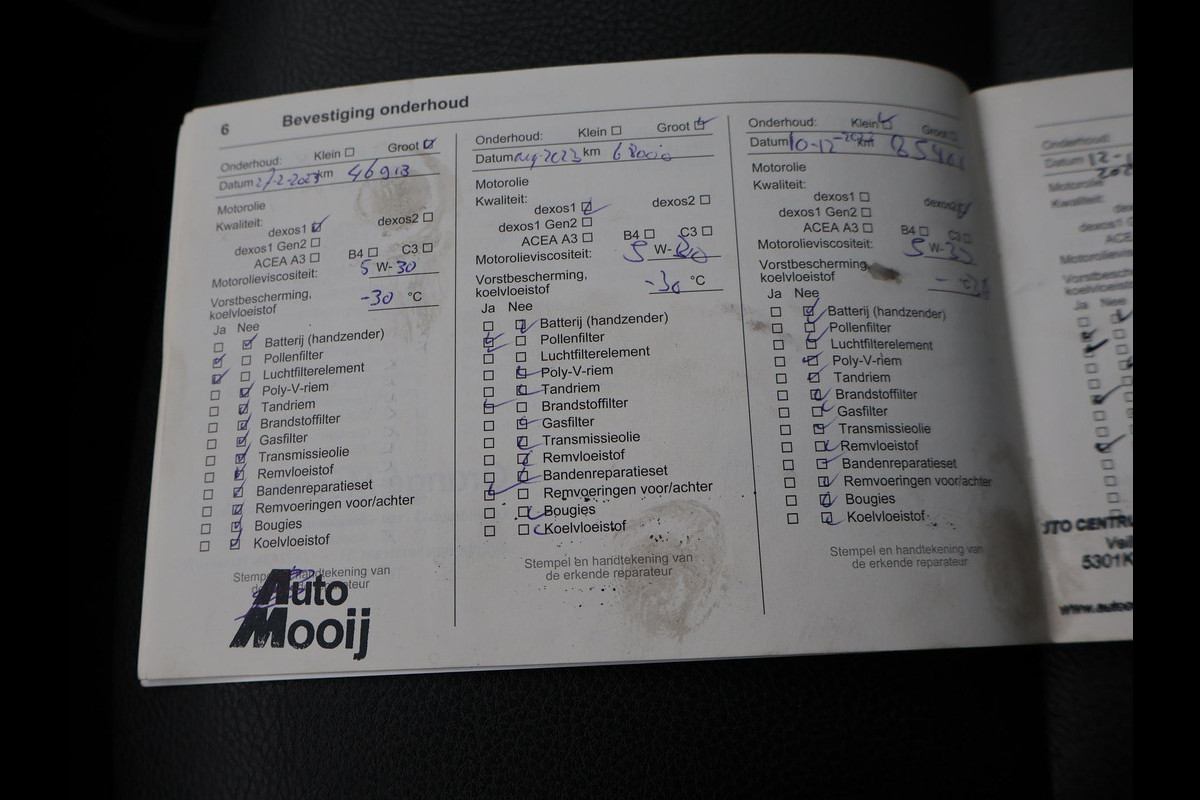 6 Bevestiging onderhoud
Onderhoud: Klein Groot
Datum 27-2-2023 km 46913
Motorolie
Kwaliteit:
dexos1 dexos2
dexos1 Gen2
ACEA A3 B4 C3
Motorolieviscositeit: 5 W-30
Vorstbescherming,
koelvloeistof -30 °C
Ja Nee
Batterij (handzender)
Pollenfilter
Luchtfilterelement
Poly-V-riem
Tandriem
Brandstoffilter
Gasfilter
Transmissieolie
Remvloeistof
Bandenreparatieset
Remvoeringen voor/achter
Bougies
Koelvloeistof
Stempel en handtekening van
de erkende reparateur
Auto
Mooij
Onderhoud: Klein Groot
Datum aug-2023 km 68000
Motorolie
Kwaliteit:
dexos1 dexos2
dexos1 Gen2
ACEA A3 B4 C3
Motorolieviscositeit: 5 W-
Vorstbescherming,
koelvloeistof -30 °C
Ja Nee
Batterij (handzender)
Pollenfilter
Luchtfilterelement
Poly-V-riem
Tandriem
Brandstoffilter
Gasfilter
Transmissieolie
Remvloeistof
Bandenreparatieset
Remvoeringen voor/achter
Bougies
Koelvloeistof
Stempel en handtekening van
de erkende reparateur
Onderhoud: Klein Groot
Datum 10-12-2023 km
Motorolie
Kwaliteit:
dexos1
dexos1 Gen2 dexos2
ACEA A3 B4 C3
Motorolieviscositeit: 5 W-30
Vorstbescherming,
koelvloeistof
Ja Nee
Batterij (handzender)
Pollenfilter
Luchtfilterelement
Poly-V-riem
Tandriem
Brandstoffilter
Gasfilter
Transmissieolie
Remvloeistof
Bandenreparatieset
Remvoeringen voor/achter
Bougies
Koelvloeistof
Stempel en handtekening van
de erkende reparateur
Onderhoud:
Datum 12-
Motorolie
Kwaliteit:
Ja Nee
5301K
www.autoo